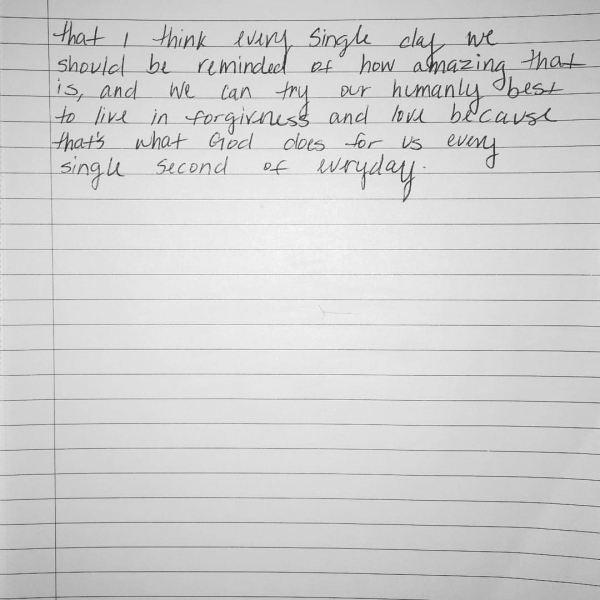 that I think every single day we
should be reminded of how amazing that
is, and we can try our humanly best
to live in forgivness and love because
that's what God does for us every
single second of everyday.